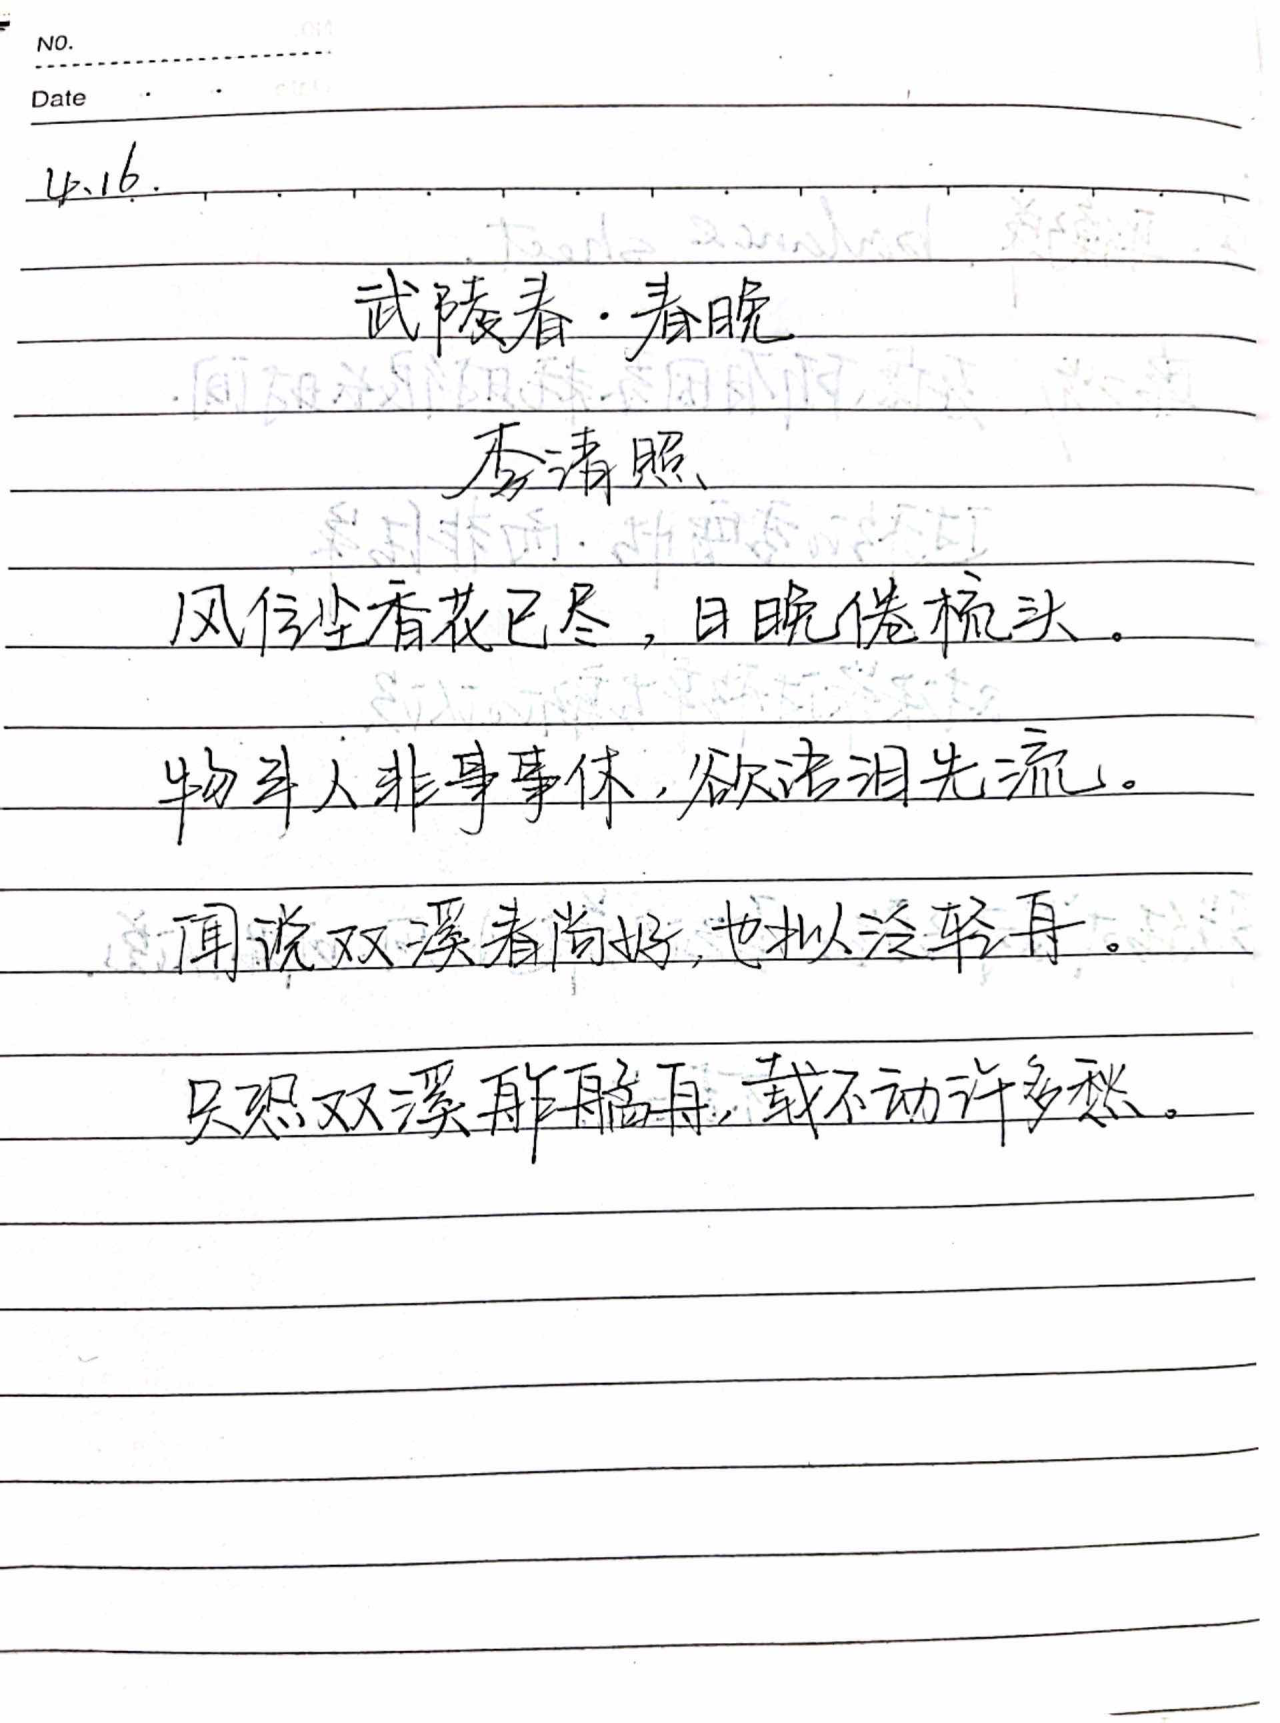 NO.
Date
4.16.
武陵春·春晚
李清照
风住尘香花已尽，日晚倦梳头。
物是人非事事休，欲语泪先流。
闻说双溪春尚好，也拟泛轻舟。
只恐双溪舴艋舟，载不动许多愁。